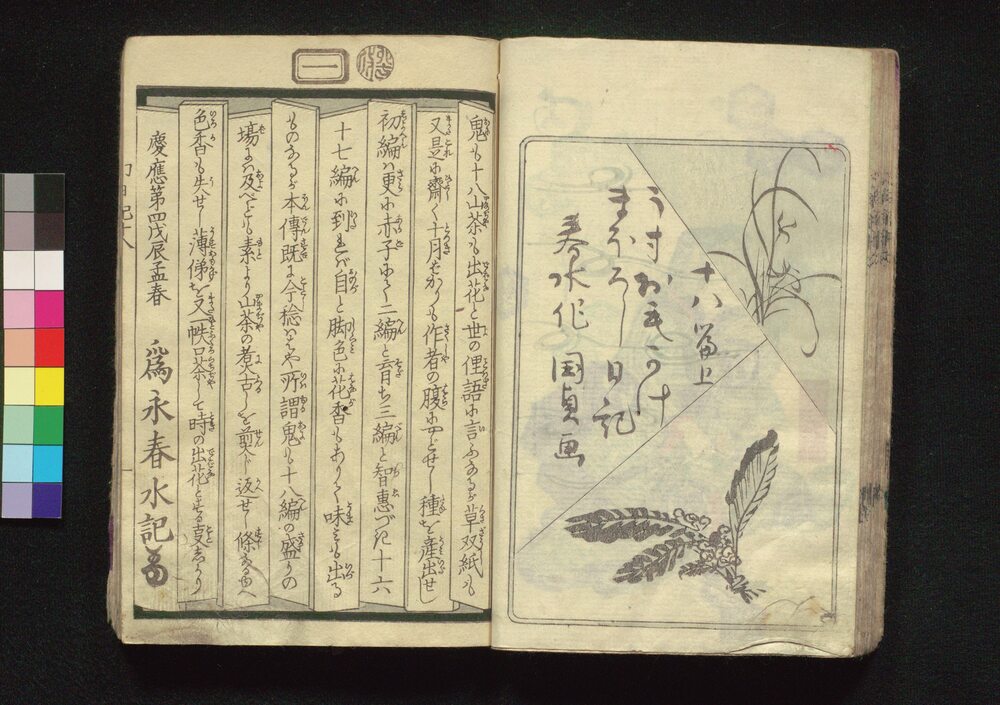 十八篇上
うすおもかけ
まほろし日記
春水作 国貞画
一
鬼も十八山茶も出花と世の俚語に言ふなるが草双紙も
又是に齋しく十月ばかりも作者の腹にやどせし種を産出せし
初編は更に赤子にて二編と育ち三編と智惠づき十六
十七編に到れば自と脚色に花香もありて味はひも出る
ものなるが本傳既に今稔はや所謂鬼も十八編の盛りの
場には及べども素より山茶の煮古しを煎じ返せし條なるゆへ
色香も失せし薄俤を又一帙口茶して時の出花とせる叓しかり
慶應第四戊辰孟春 爲永春水記